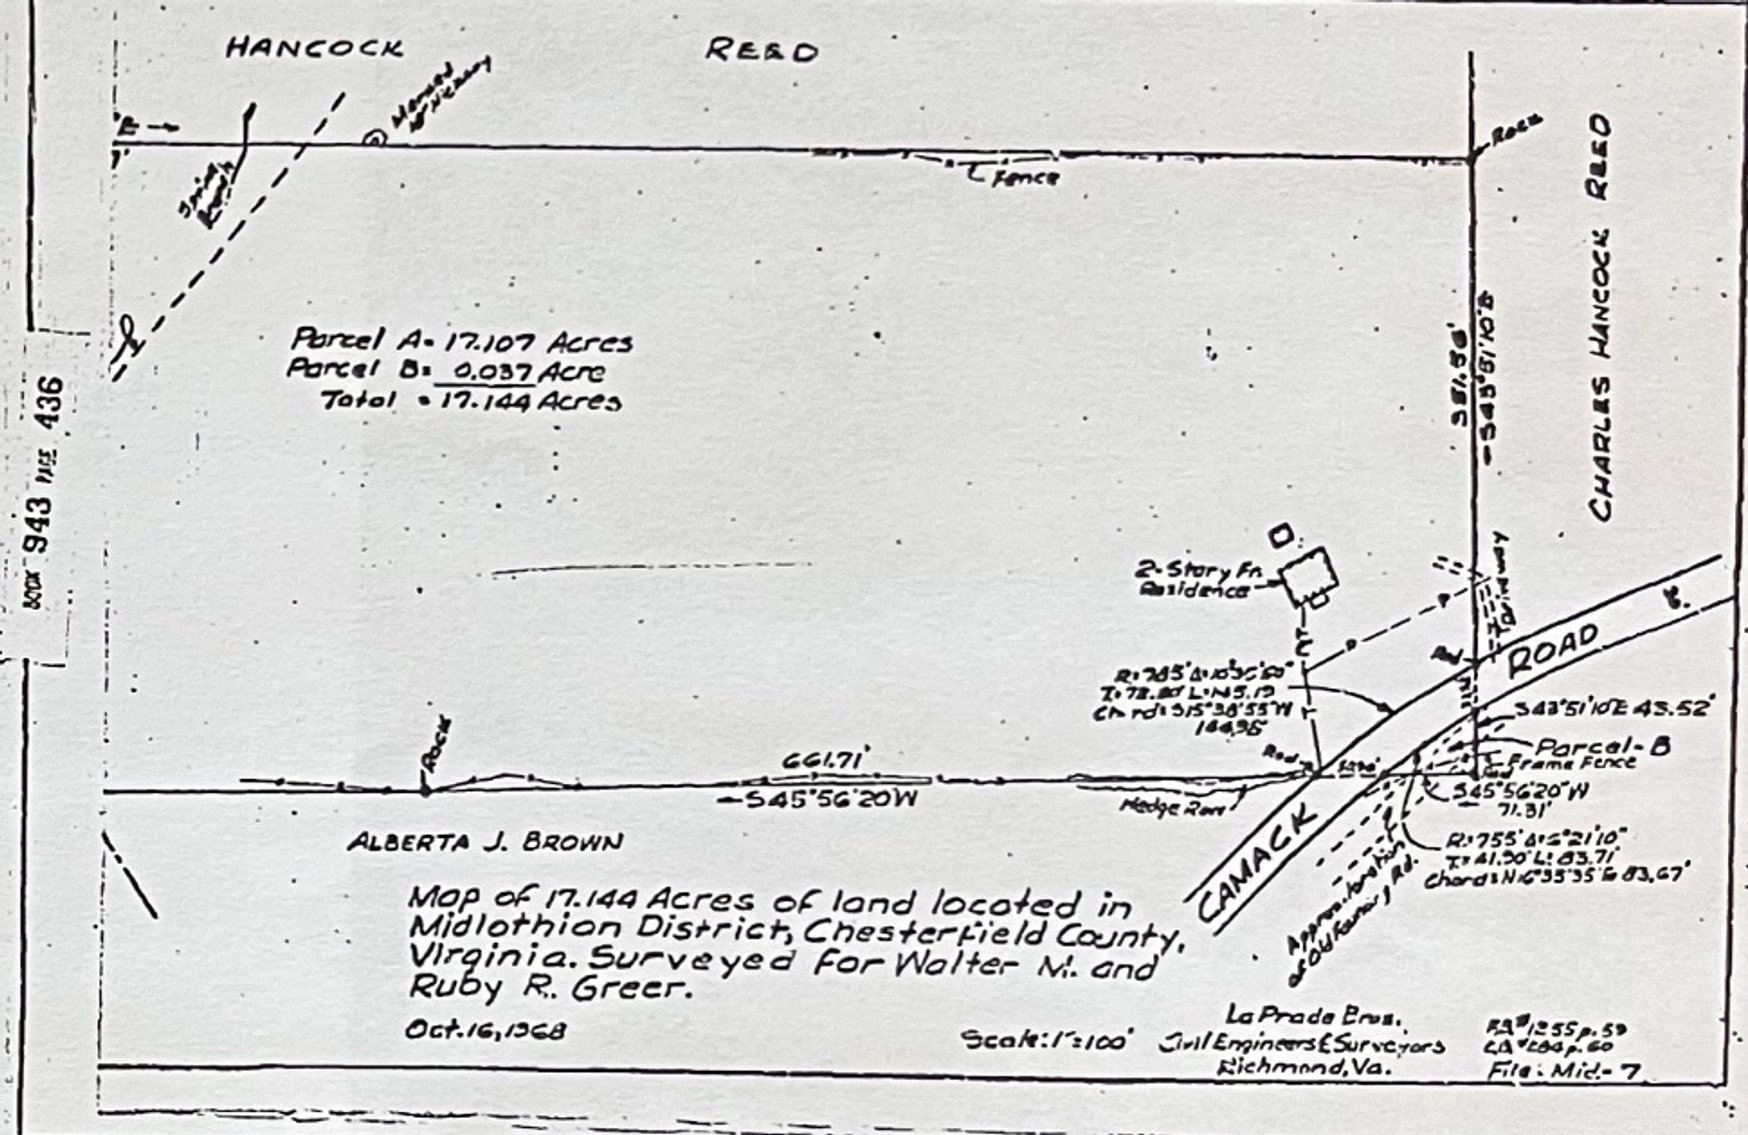 HANCOCK REED
Marked
Hickory
E
7'
Rock
Spring
Branch
Fence
CHARLES HANCOCK REED
BOOK 943 PAGE 436
Parcel A = 17.107 Acres
Parcel B = 0.037 Acre
Total = 17.144 Acres
351.58'
S43°51'10"E
2-Story Fr.
Residence
Driveway
P
P
ROAD
Rd
R=785' Δ=10°35'50"
L=145.19
Chord=S15°38'55"W
144.98'
S43°51'10"E 43.52'
Parcel-B
Frame Fence
Rod
Rod
Rock
661.71'
S45°56'20"W
Hedge Row
S45°56'20"W
71.31'
R=755' Δ=6°21'10"
T=41.90' L=83.71'
Chord=N16°35'35"E 83.67'
CAMACK
Approx. location
of Old Rd.
ALBERTA J. BROWN
Map of 17.144 Acres of land located in
Midlothian District, Chesterfield County,
Virginia. Surveyed for Walter M. and
Ruby R. Greer.
Oct. 16, 1968
Scale: 1"=100'
LaPrade Bros.
Civil Engineers & Surveyors
Richmond, Va.
p. 59
p. 60
File: Mid.-7